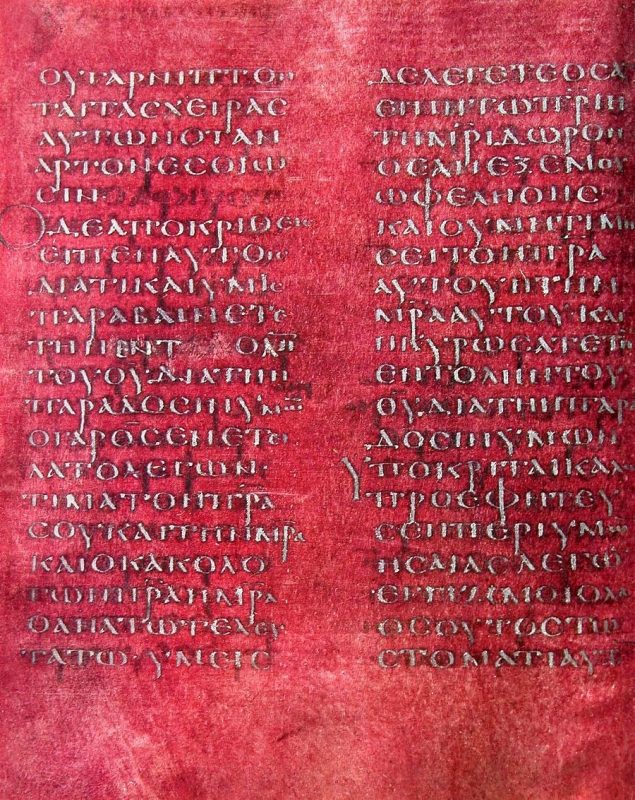 ΟΥΓΑΡΝΙΠΤΟΝ
ΤΑΙΤΑϹΧΕΙΡΑϹ
ΑΥΤΩΝΟΤΑΝ
ΑΡΤΟΝΕϹΘΙΩ
ϹΙΝ
ΟΔΕΑΠΟΚΡΙΘΕΙϹ
ΕΙΠΕΝΑΥΤΟΙϹ
ΔΙΑΤΙΚΑΙΥΜΕΙϹ
ΠΑΡΑΒΑΙΝΕΤΕ
ΤΗΝΕΝΤΟΛΗΝ
ΤΟΥΘ̅Υ̅ΔΙΑΤΗΝ
ΠΑΡΑΔΟϹΙΝΥΜΩΝ
ΟΓΑΡΘ̅Ϲ̅ΕΝΕΤΕΙ
ΛΑΤΟΛΕΓΩΝ·
ΤΙΜΑΤΟΝΠ̅Ρ̅Α̅
ϹΟΥΚΑΙΤΗΝΜ̅Ρ̅Α̅
ΚΑΙΟΚΑΚΟΛΟ
ΓΩΝΠ̅Ρ̅Α̅ΗΜ̅Ρ̅Α̅
ΘΑΝΑΤΩΤΕΛΕΥ
ΤΑΤΩ·ΥΜΕΙϹ
ΔΕΛΕΓΕΤΕΟϹΑ
ΕΙΠΗΤΩΠ̅Ρ̅Ι̅Η
ΤΗΜ̅Ρ̅Ι̅ΔΩΡΟΝ
ΟΕΑΝΕΞΕΜΟΥ
ΩΦΕΛΗΘΗϹ
ΚΑΙΟΥΜΗΤΙΜΗ
ϹΕΙΤΟΝΠ̅Ρ̅Α̅
ΑΥΤΟΥΗΤΗΝ
Μ̅Ρ̅Α̅ΑΥΤΟΥΚΑΙ
ΗΚΥΡΩϹΑΤΕΤΗΝ
ΕΝΤΟΛΗΝΤΟΥ
Θ̅Υ̅ΔΙΑΤΗΝΠΑΡ
ΔΟϹΙΝΥΜΩΝ
ΥΠΟΚΡΙΤΑΙΚΑΛ
ΠΡΟΕΦΗΤΕΥ
ϹΕΝΠΕΡΙΥΜΩ
ΗϹΑΙΑϹΛΕΓΩ
ΕΓΓΙΖΙΜΟΙΟΛΑ
ΟϹΟΥΤΟϹΤΩ
ϹΤΟΜΑΤΙΑΥΤ